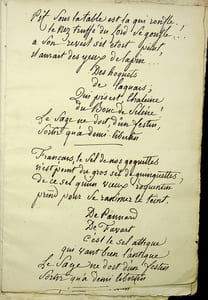 Pit sous la table est la qui ronfle.
le nez truffé du Lord se gonfle..!
a son reveil s'il etoit
il aurait des yeux de lapin...
Des hoquets
de laquais,
Qui pis est, l'haleine
du Bouc de Silène
Le Sage ne doit d'un festin,
Sortir qu'a demi libertin
Français, le sel de nos goguettes
n'est point du gros sel de guinguettes,
de ce sel qu'un vieux roquentin
prend pour se ranimer le teint.
De Pannard
De Favart
C'est le sel attique
qui vaut bien l'antique
Le Sage ne doit d'un festin
Sortir qu'a demi libertin